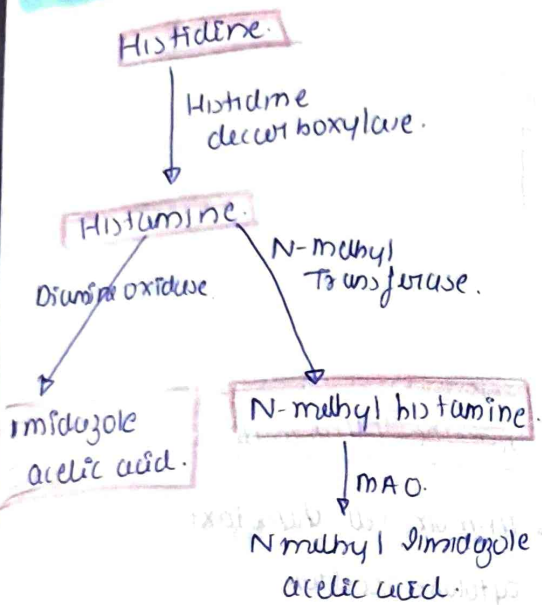 Histidine.
Histidine
decarboxylase.
Histamine.
Diamine oxidase
N-methyl
Transferase.
imidazole
acetic acid.
N-methyl histamine.
MAO.
N methyl Imidazole
acetic acid.